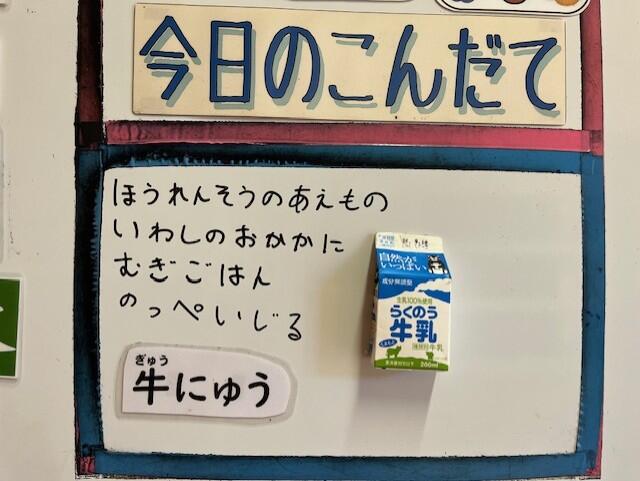 今日のこんだて
ほうれんそうのあえもの
いわしのおかかに
むぎごはん
のっぺいじる
ぎゅう
牛にゅう
自然がいっぱい
成分無調整
生乳100%使用
らくのう
牛乳
200ml